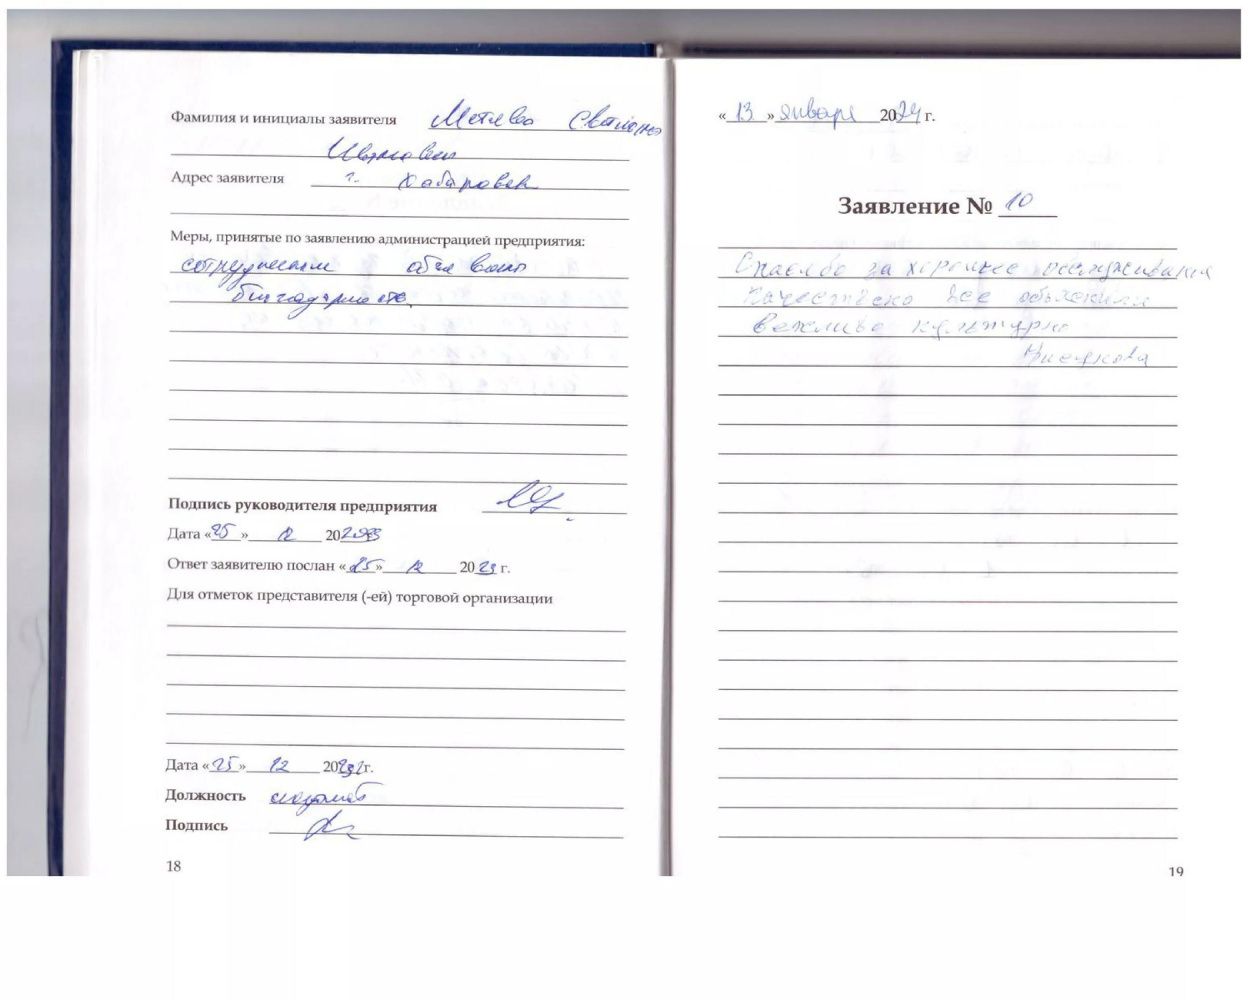 Фамилия и инициалы заявителя
Адрес заявителя г. Хабаровск
Меры, принятые по заявлению администрацией предприятия:
сотрудникам объявить
благодарность.
Подпись руководителя предприятия
Дата «25» 12 20
Ответ заявителю послан «25» 12 2023 г.
Для отметок представителя (-ей) торговой организации
Дата «25» 12 20 г.
Должность
Подпись
18
«13» января 2024 г.
Заявление № 10
Спасибо за хорошее обслуживания
качествено все объяснили
вежливо культурно
19